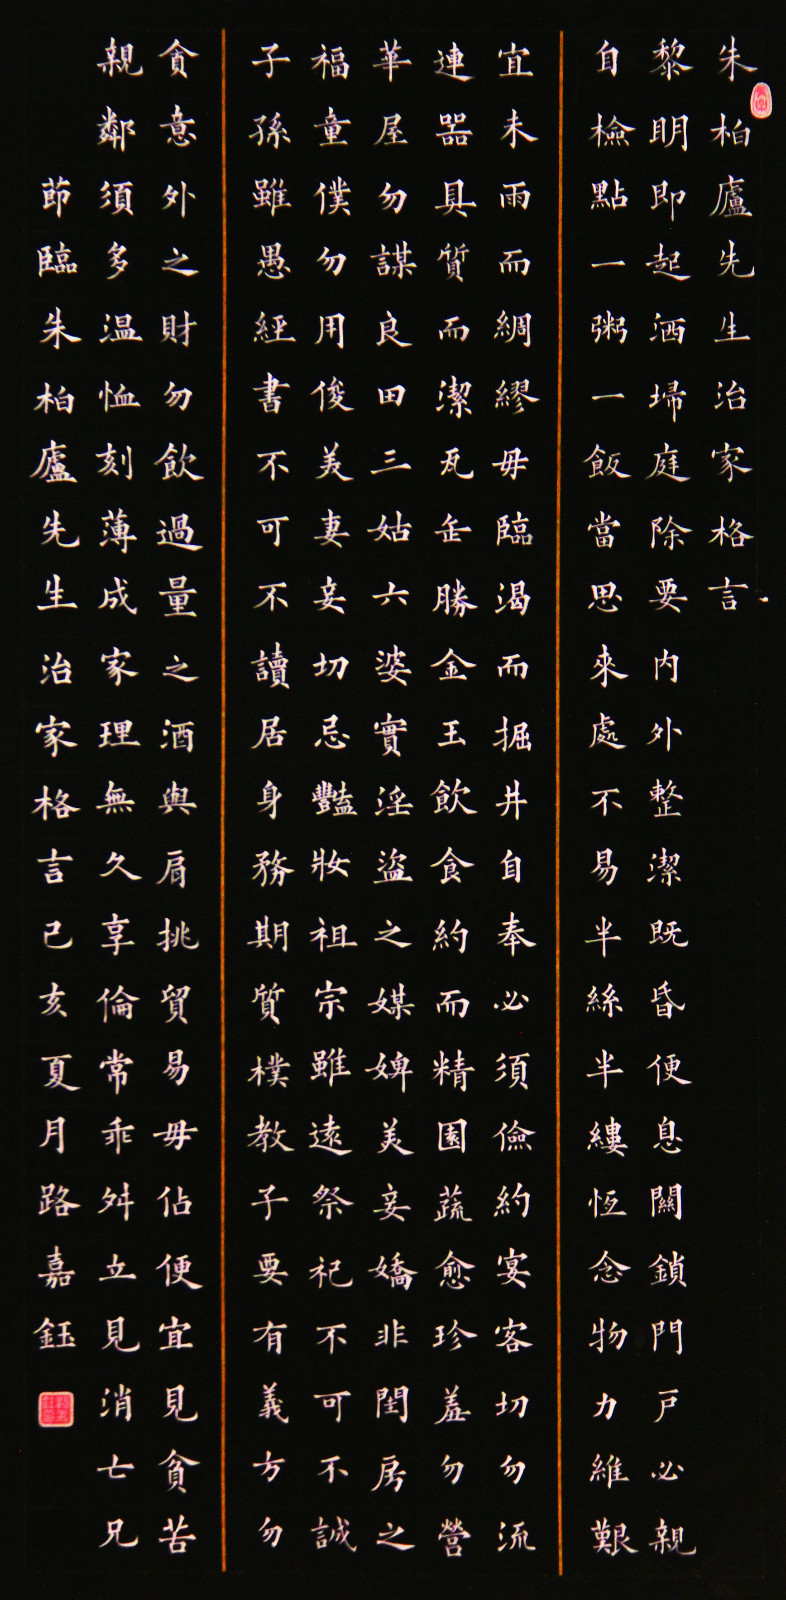 朱柏廬先生治家格言
黎明即起洒埽庭除要内外整潔既昏便息關鎖門戶必親
自檢點一粥一飯當思來處不易半絲半縷恆念物力維艱
宜未雨而綢繆毋臨渴而掘井自奉必須儉約宴客切勿流
連器具質而潔瓦缶勝金玉飲食約而精園蔬愈珍羞勿營
華屋勿謀良田三姑六婆實淫盜之媒婢美妾嬌非閨房之
福童僕勿用俊美妻妾切忌豔妝祖宗雖遠祭祀不可不誠
子孫雖愚經書不可不讀居身務期質樸教子要有義方勿
貪意外之財勿飲過量之酒與肩挑貿易毋佔便宜見貧苦
親鄰須多温恤刻薄成家理無久享倫常乖舛立見消亡兄
節臨朱柏廬先生治家格言己亥夏月路嘉鈺